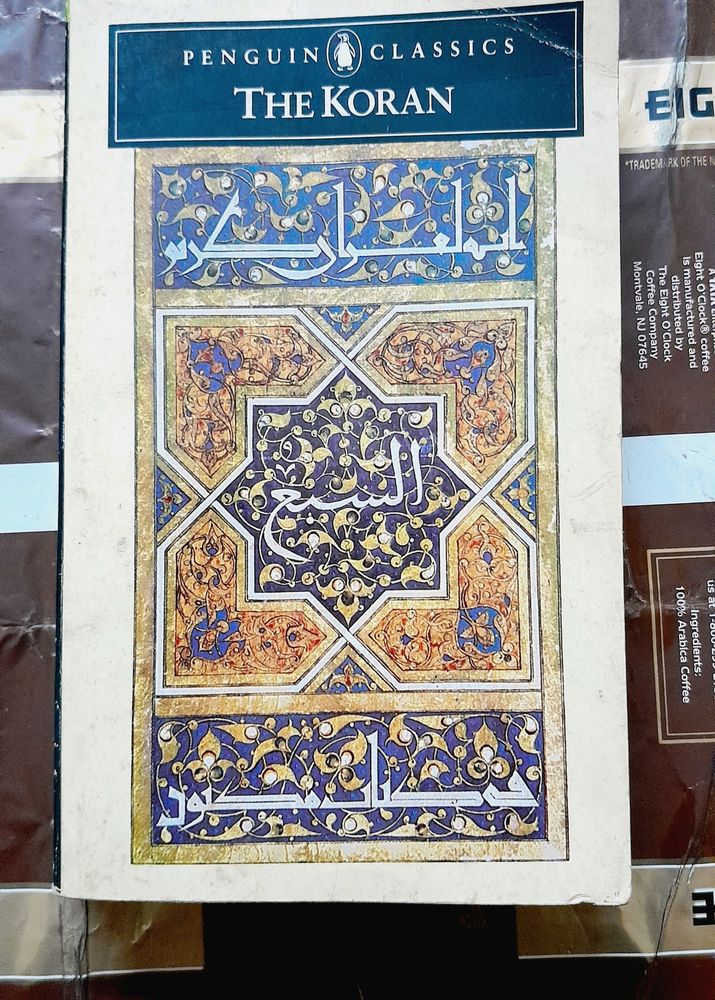 PENGUIN CLASSICS
THE KORAN
انه لقران كريم
السبع
في كتاب مكنون
EIG
*TRADEMARK OF THE
Eight O'Clock® coffee
is manufactured and
distributed by
The Eight O'Clock
Coffee Company
Montvale, NJ 07645
us at 1-800
Ingredients:
100% Arabica Coffee